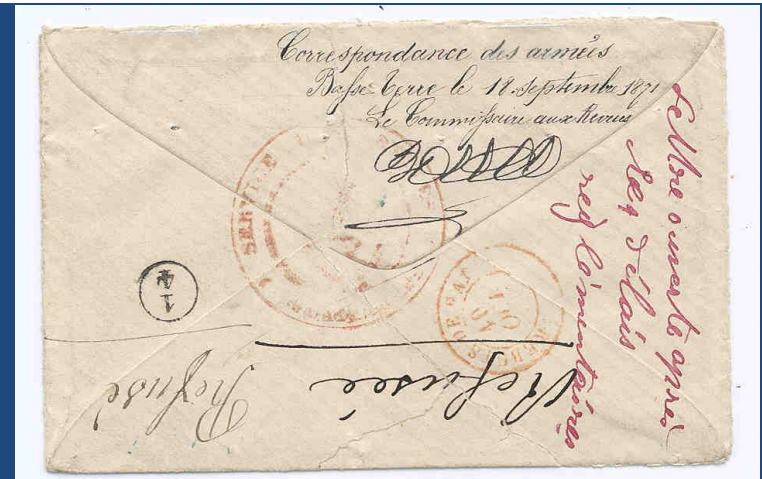 Correspondance des armées
Basse Terre le 18 Septembre 1871
Le Commissaire aux Revues
Lettre ouverte après
les délais
reglementaires
SERVICE
1
4
Refusée
Refusé